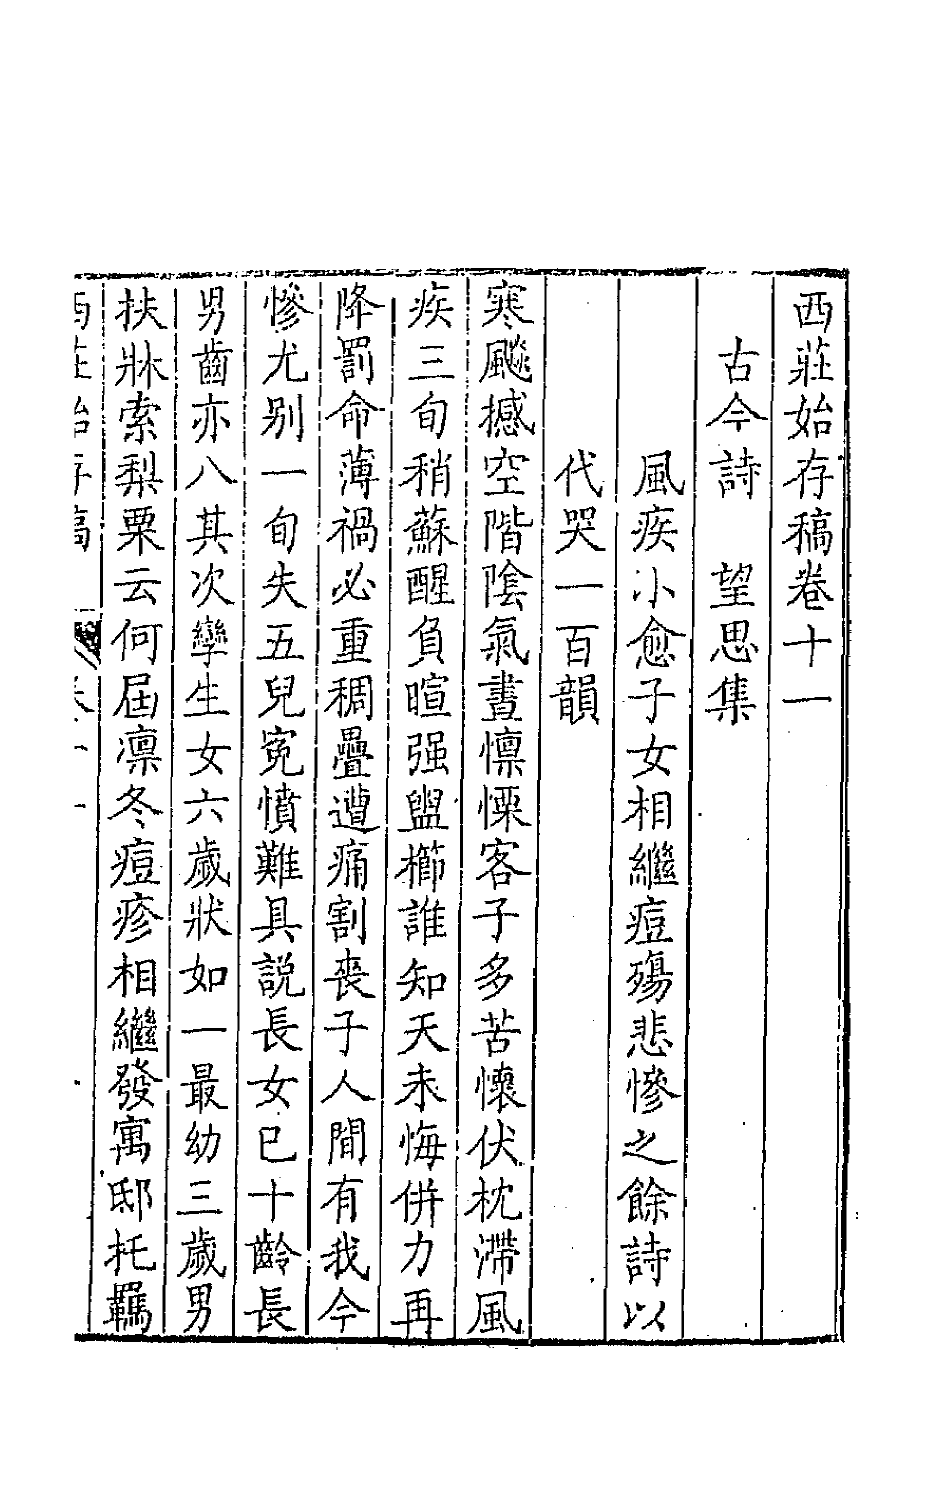 西莊始存稿卷十一
古今詩　望思集
風疾小愈子女相繼痘殤悲慘之餘詩以
代哭一百韻
寒颷撼空階陰氣晝懍慄客子多苦懷伏枕滯風
疾三旬稍蘇醒負暄强盥櫛誰知天未悔併力再
降罰命薄禍必重稠疊遭痛割喪子人間有我今
慘尤别一旬失五兒寃憤難具説長女已十齡長
男齒亦八其次孿生女六歲狀如一最幼三歲男
扶牀索梨栗云何屆凛冬痘疹相繼發寓邸托羈
西莊始存稿　卷十一